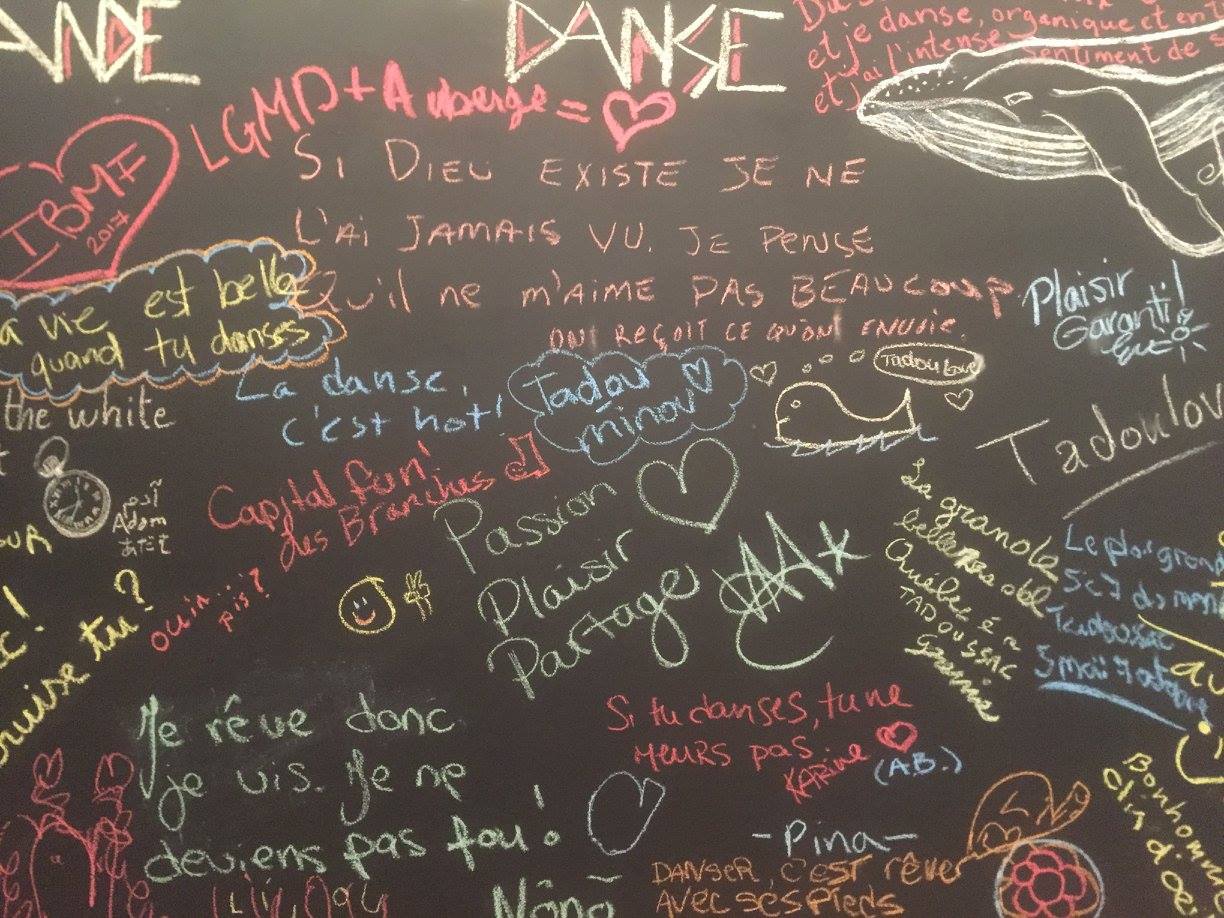 ANDE
DANSE
et je danse, organique et en
et j'ai l'intense sentiment de
et j'
LGMD+Auberge =
IBMF
2017
SI DIEU EXISTE JE NE
L'AI JAMAIS VU. JE PENSE
Qu'il ne m'AIME PAS BEAUCOUP
ONT REÇOIT CE QU'ONT ENVOIE.
a vie est belle
quand tu danses
the white
La danse,
c'est hot!
Tadou
minou
TadouLove
Plaisir
Garanti!
Tadoulov
Capital fun!
des Branchés
Adam
Passion
Plaisir
Partage
La granola
Québec
TADOUSSAC
Le plus grand
5 à 7 du mon
Tadoussac
ouin...
pis?
tu?
Je rêve donc
je vis. Je ne
deviens pas fou!
Si tu danses, tu ne
meurs pas
KARINE
(A.B.)
-Pina-
DANSER, c'est rêver
AVEC SES PIEDS
Bonhomm
Clin d'oe
Nönö